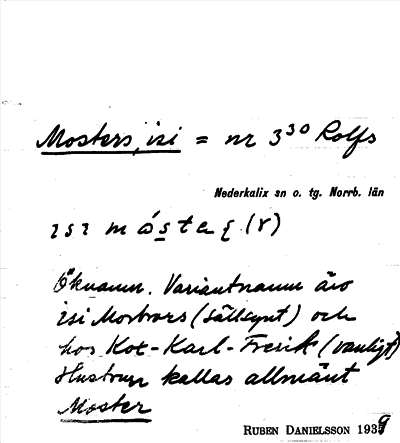 Mosters, isi = nr 3³⁰ Rolfs
Nederkalix sn o. tg. Norrb. län
Öknamn. Variantnamn äro
isi Mostrors (sällsynt) och
hos Kot-Karl-Frerik (vanligt)
Hustrun kallas allmänt
Moster
RUBEN DANIELSSON 1939